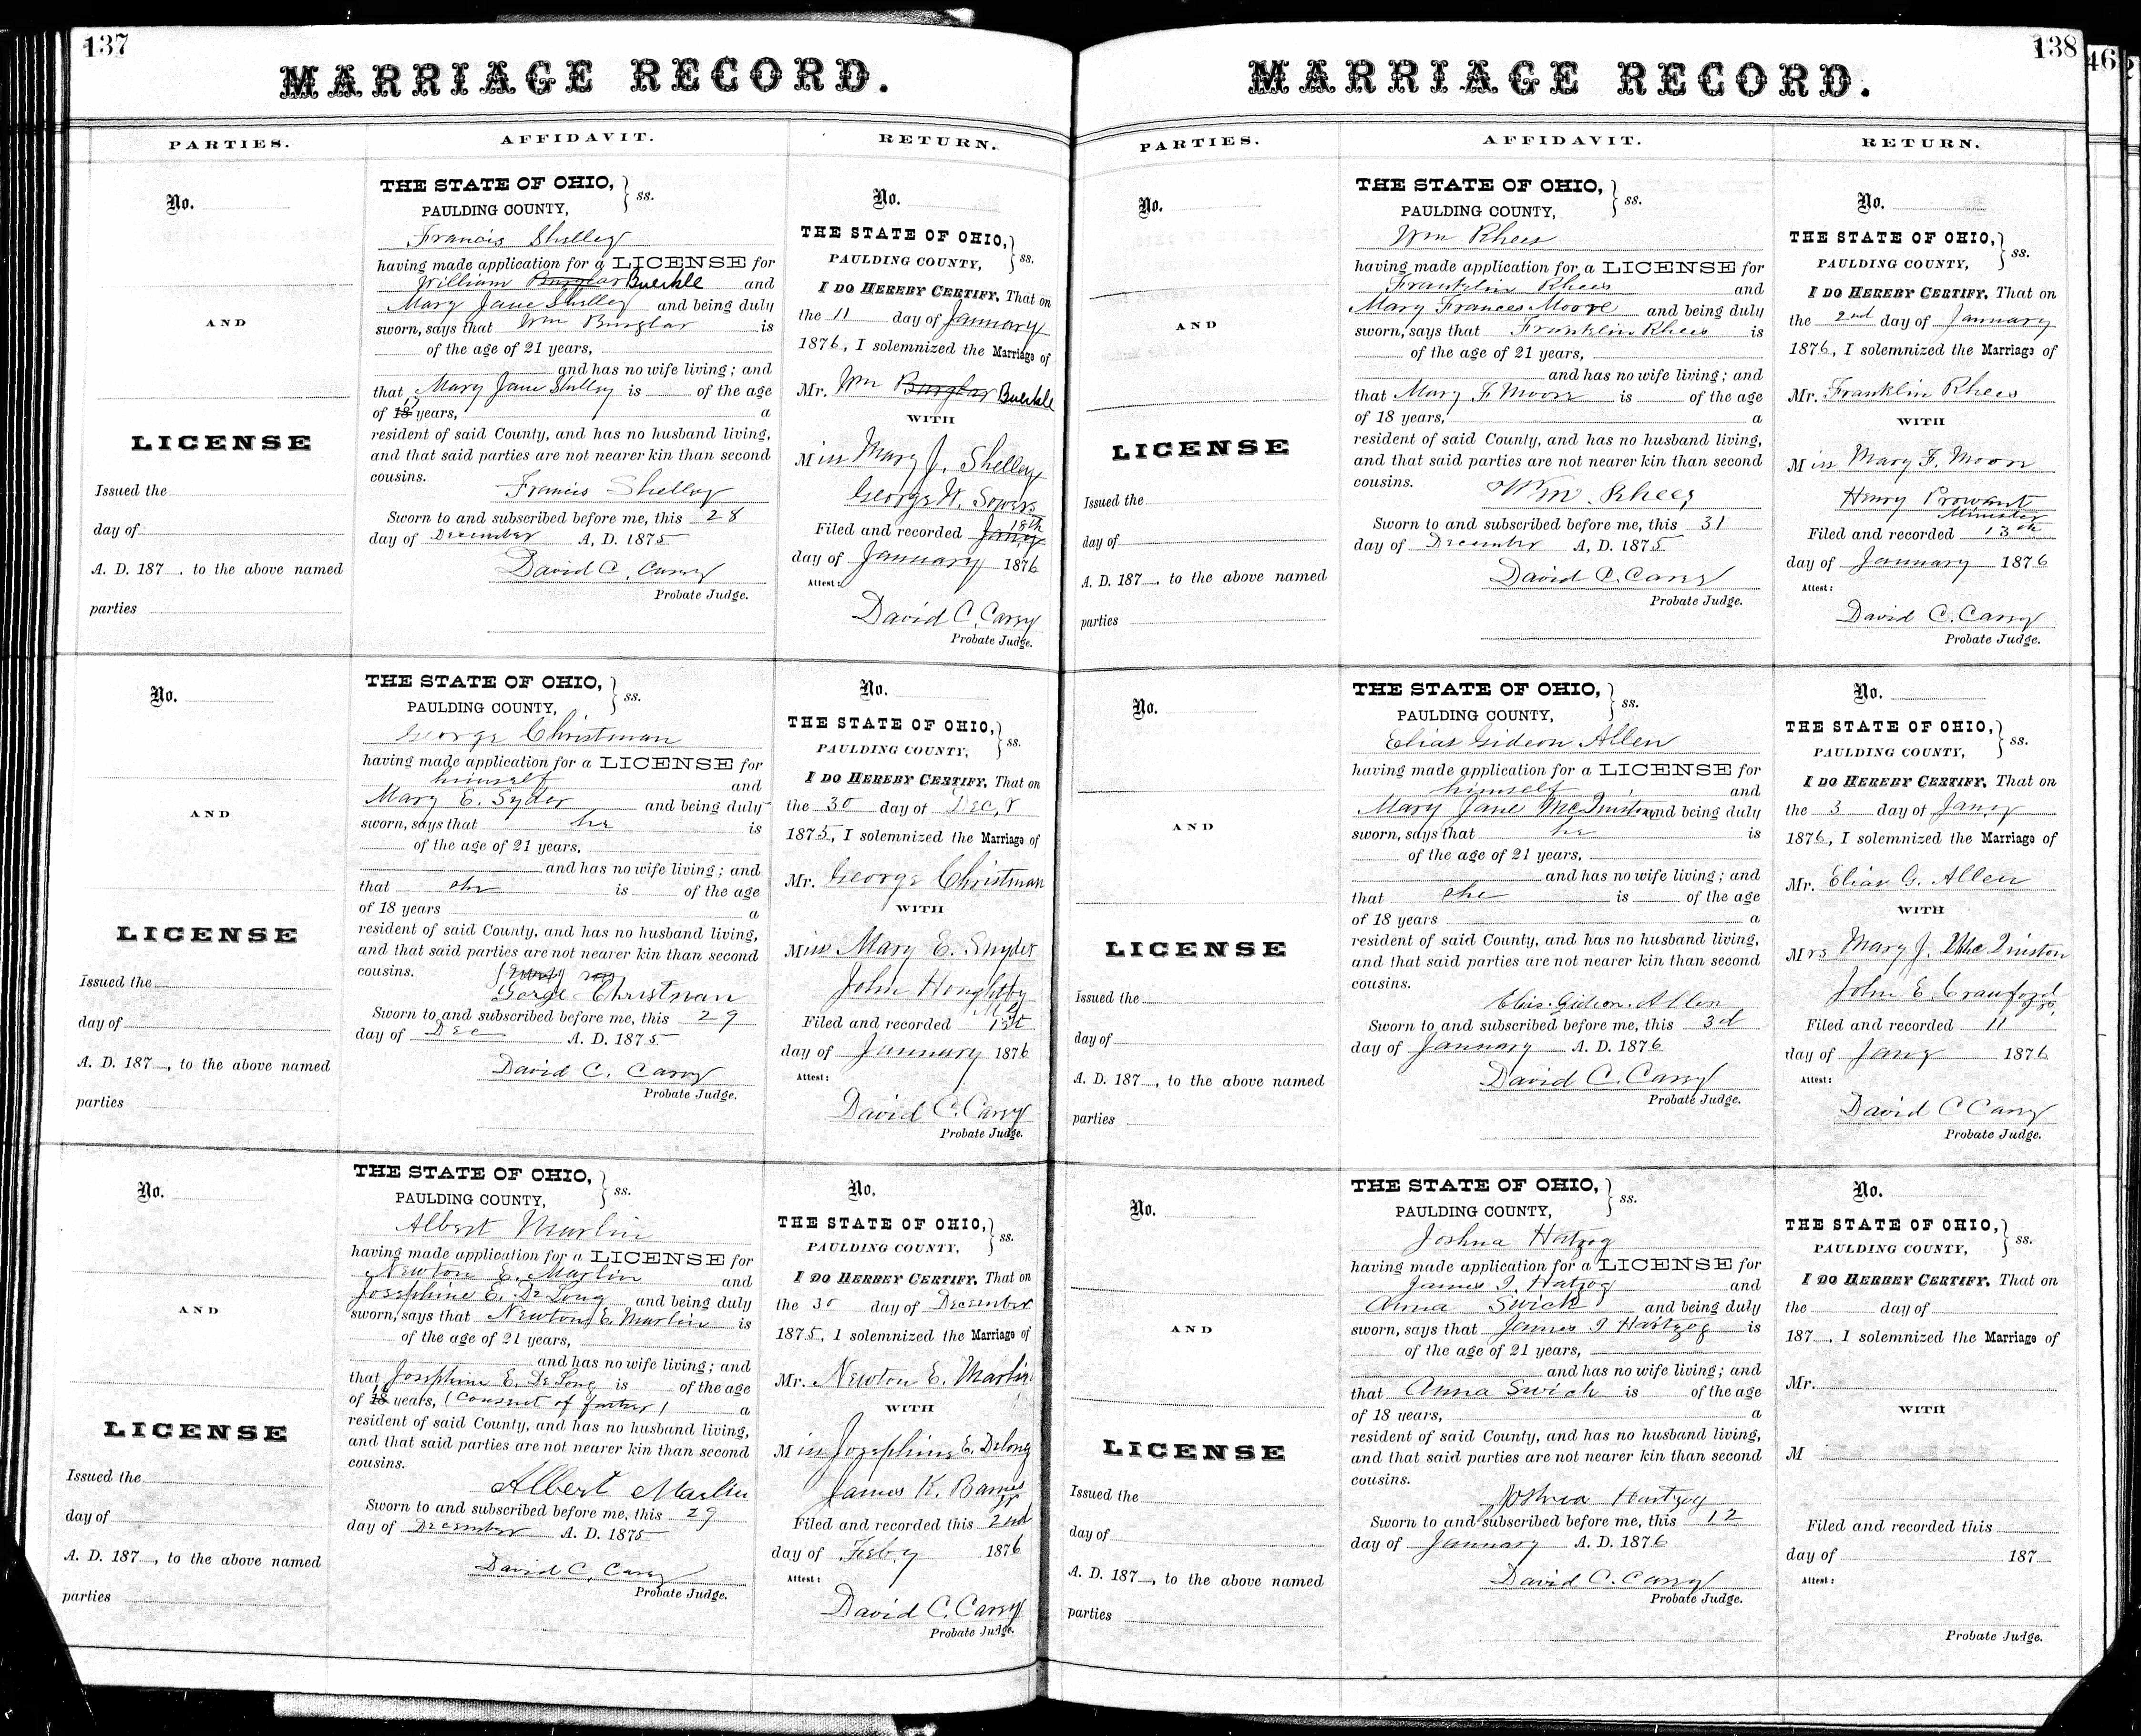 137
MARRIAGE RECORD.
PARTIES.
AFFIDAVIT.
RETURN.
No.
AND
LICENSE
Issued the
day of
A. D. 187 , to the above named
parties
THE STATE OF OHIO,
PAULDING COUNTY, } ss.
Francis Shelley
having made application for a LICENSE for
William Burglar Buerkle and
Mary Jane Shelley and being duly
sworn, says that Wm Burglar is
of the age of 21 years,
and has no wife living; and
that Mary Jane Shelley is of the age
of 18 years, a
resident of said County, and has no husband living,
and that said parties are not nearer kin than second
cousins.
Francis Shelley
Sworn to and subscribed before me, this 28
day of December A. D. 1875
David C. Carey
Probate Judge.
No.
THE STATE OF OHIO,
PAULDING COUNTY, } ss.
I DO HEREBY CERTIFY, That on
the 11 day of January
1876, I solemnized the Marriage of
Mr. Wm Burglar Buerkle
WITH
Miss Mary J. Shelley
George W. Sowers
Filed and recorded Jany 18th
day of January 1876
Attest:
David C. Carey
Probate Judge.
No.
AND
LICENSE
Issued the
day of
A. D. 187 , to the above named
parties
THE STATE OF OHIO,
PAULDING COUNTY, } ss.
George Christman
having made application for a LICENSE for
himself and
Mary E. Syder and being duly
sworn, says that he is
of the age of 21 years,
and has no wife living; and
that she is of the age
of 18 years a
resident of said County, and has no husband living,
and that said parties are not nearer kin than second
cousins.
Gorge Christman
Sworn to and subscribed before me, this 29
day of Dec A. D. 1875
David C. Carey
Probate Judge.
No.
THE STATE OF OHIO,
PAULDING COUNTY, } ss.
I DO HEREBY CERTIFY, That on
the 30 day of Dec,r
1875, I solemnized the Marriage of
Mr. George Christman
WITH
Miss Mary E. Snyder
John
Filed and recorded 1st
day of January 1876
Attest:
David C. Carey
Probate Judge.
No.
AND
LICENSE
Issued the
day of
A. D. 187 , to the above named
parties
THE STATE OF OHIO,
PAULDING COUNTY, } ss.
Albert Marlin
having made application for a LICENSE for
Newton E. Marlin and
Josephine E. De Long and being duly
sworn, says that Newton E. Marlin is
of the age of 21 years,
and has no wife living; and
that Josephine E. De Long is of the age
of 18 years, (consent of father) a
resident of said County, and has no husband living,
and that said parties are not nearer kin than second
cousins.
Albert Marlin
Sworn to and subscribed before me, this 29
day of December A. D. 1875
David C. Carey
Probate Judge.
No.
THE STATE OF OHIO,
PAULDING COUNTY, } ss.
I DO HEREBY CERTIFY, That on
the 30 day of December
1875, I solemnized the Marriage of
Mr. Newton E. Marlin
WITH
Miss Josephine E. Delong
James K. Barnes
Filed and recorded this 2nd
day of Feby 1876
Attest:
David C. Carey
Probate Judge.
138
46
MARRIAGE RECORD.
PARTIES.
AFFIDAVIT.
RETURN.
No.
AND
LICENSE
Issued the
day of
A. D. 187 , to the above named
parties
THE STATE OF OHIO,
PAULDING COUNTY, } ss.
Wm Rhees
having made application for a LICENSE for
Franklin Rhees and
Mary Frances Moore and being duly
sworn, says that Franklin Rhees is
of the age of 21 years,
and has no wife living; and
that Mary F. Moore is of the age
of 18 years, a
resident of said County, and has no husband living,
and that said parties are not nearer kin than second
cousins.
Wm. Rhees
Sworn to and subscribed before me, this 31
day of December A. D. 1875
David C. Carey
Probate Judge.
No.
THE STATE OF OHIO,
PAULDING COUNTY, } ss.
I DO HEREBY CERTIFY, That on
the 2nd day of January
1876, I solemnized the Marriage of
Mr. Franklin Rhees
WITH
Miss Mary F. Moore
Henry Prowant
Minister
Filed and recorded 13th
day of January 1876
Attest:
David C. Carey
Probate Judge.
No.
AND
LICENSE
Issued the
day of
A. D. 187 , to the above named
parties
THE STATE OF OHIO,
PAULDING COUNTY, } ss.
Elias Gideon Allen
having made application for a LICENSE for
himself and
Mary Jane McQuiston and being duly
sworn, says that he is
of the age of 21 years,
and has no wife living; and
that she is of the age
of 18 years a
resident of said County, and has no husband living,
and that said parties are not nearer kin than second
cousins.
Elias. Gideon. Allen
Sworn to and subscribed before me, this 3d
day of January A. D. 1876
David C. Carey
Probate Judge.
No.
THE STATE OF OHIO,
PAULDING COUNTY, } ss.
I DO HEREBY CERTIFY, That on
the 3 day of Jany
1876, I solemnized the Marriage of
Mr. Elias G. Allen
WITH
Mrs Mary J. McQuiston
John E. Crawford
Filed and recorded 11
day of Jany 1876
Attest:
David C Carey
Probate Judge.
No.
AND
LICENSE
Issued the
day of
A. D. 187 , to the above named
parties
THE STATE OF OHIO,
PAULDING COUNTY, } ss.
Joshua Hatzog
having made application for a LICENSE for
James I. Hatzog and
Anna Swick and being duly
sworn, says that James I Hartzog is
of the age of 21 years,
and has no wife living; and
that Anna Swick is of the age
of 18 years, a
resident of said County, and has no husband living,
and that said parties are not nearer kin than second
cousins.
Joshua Hartzog
Sworn to and subscribed before me, this 12
day of January A. D. 1876
David C. Carey
Probate Judge.
No.
THE STATE OF OHIO,
PAULDING COUNTY, } ss.
I DO HEREBY CERTIFY, That on
the day of
187 , I solemnized the Marriage of
Mr.
WITH
M
Filed and recorded this
day of 187
Attest:
Probate Judge.